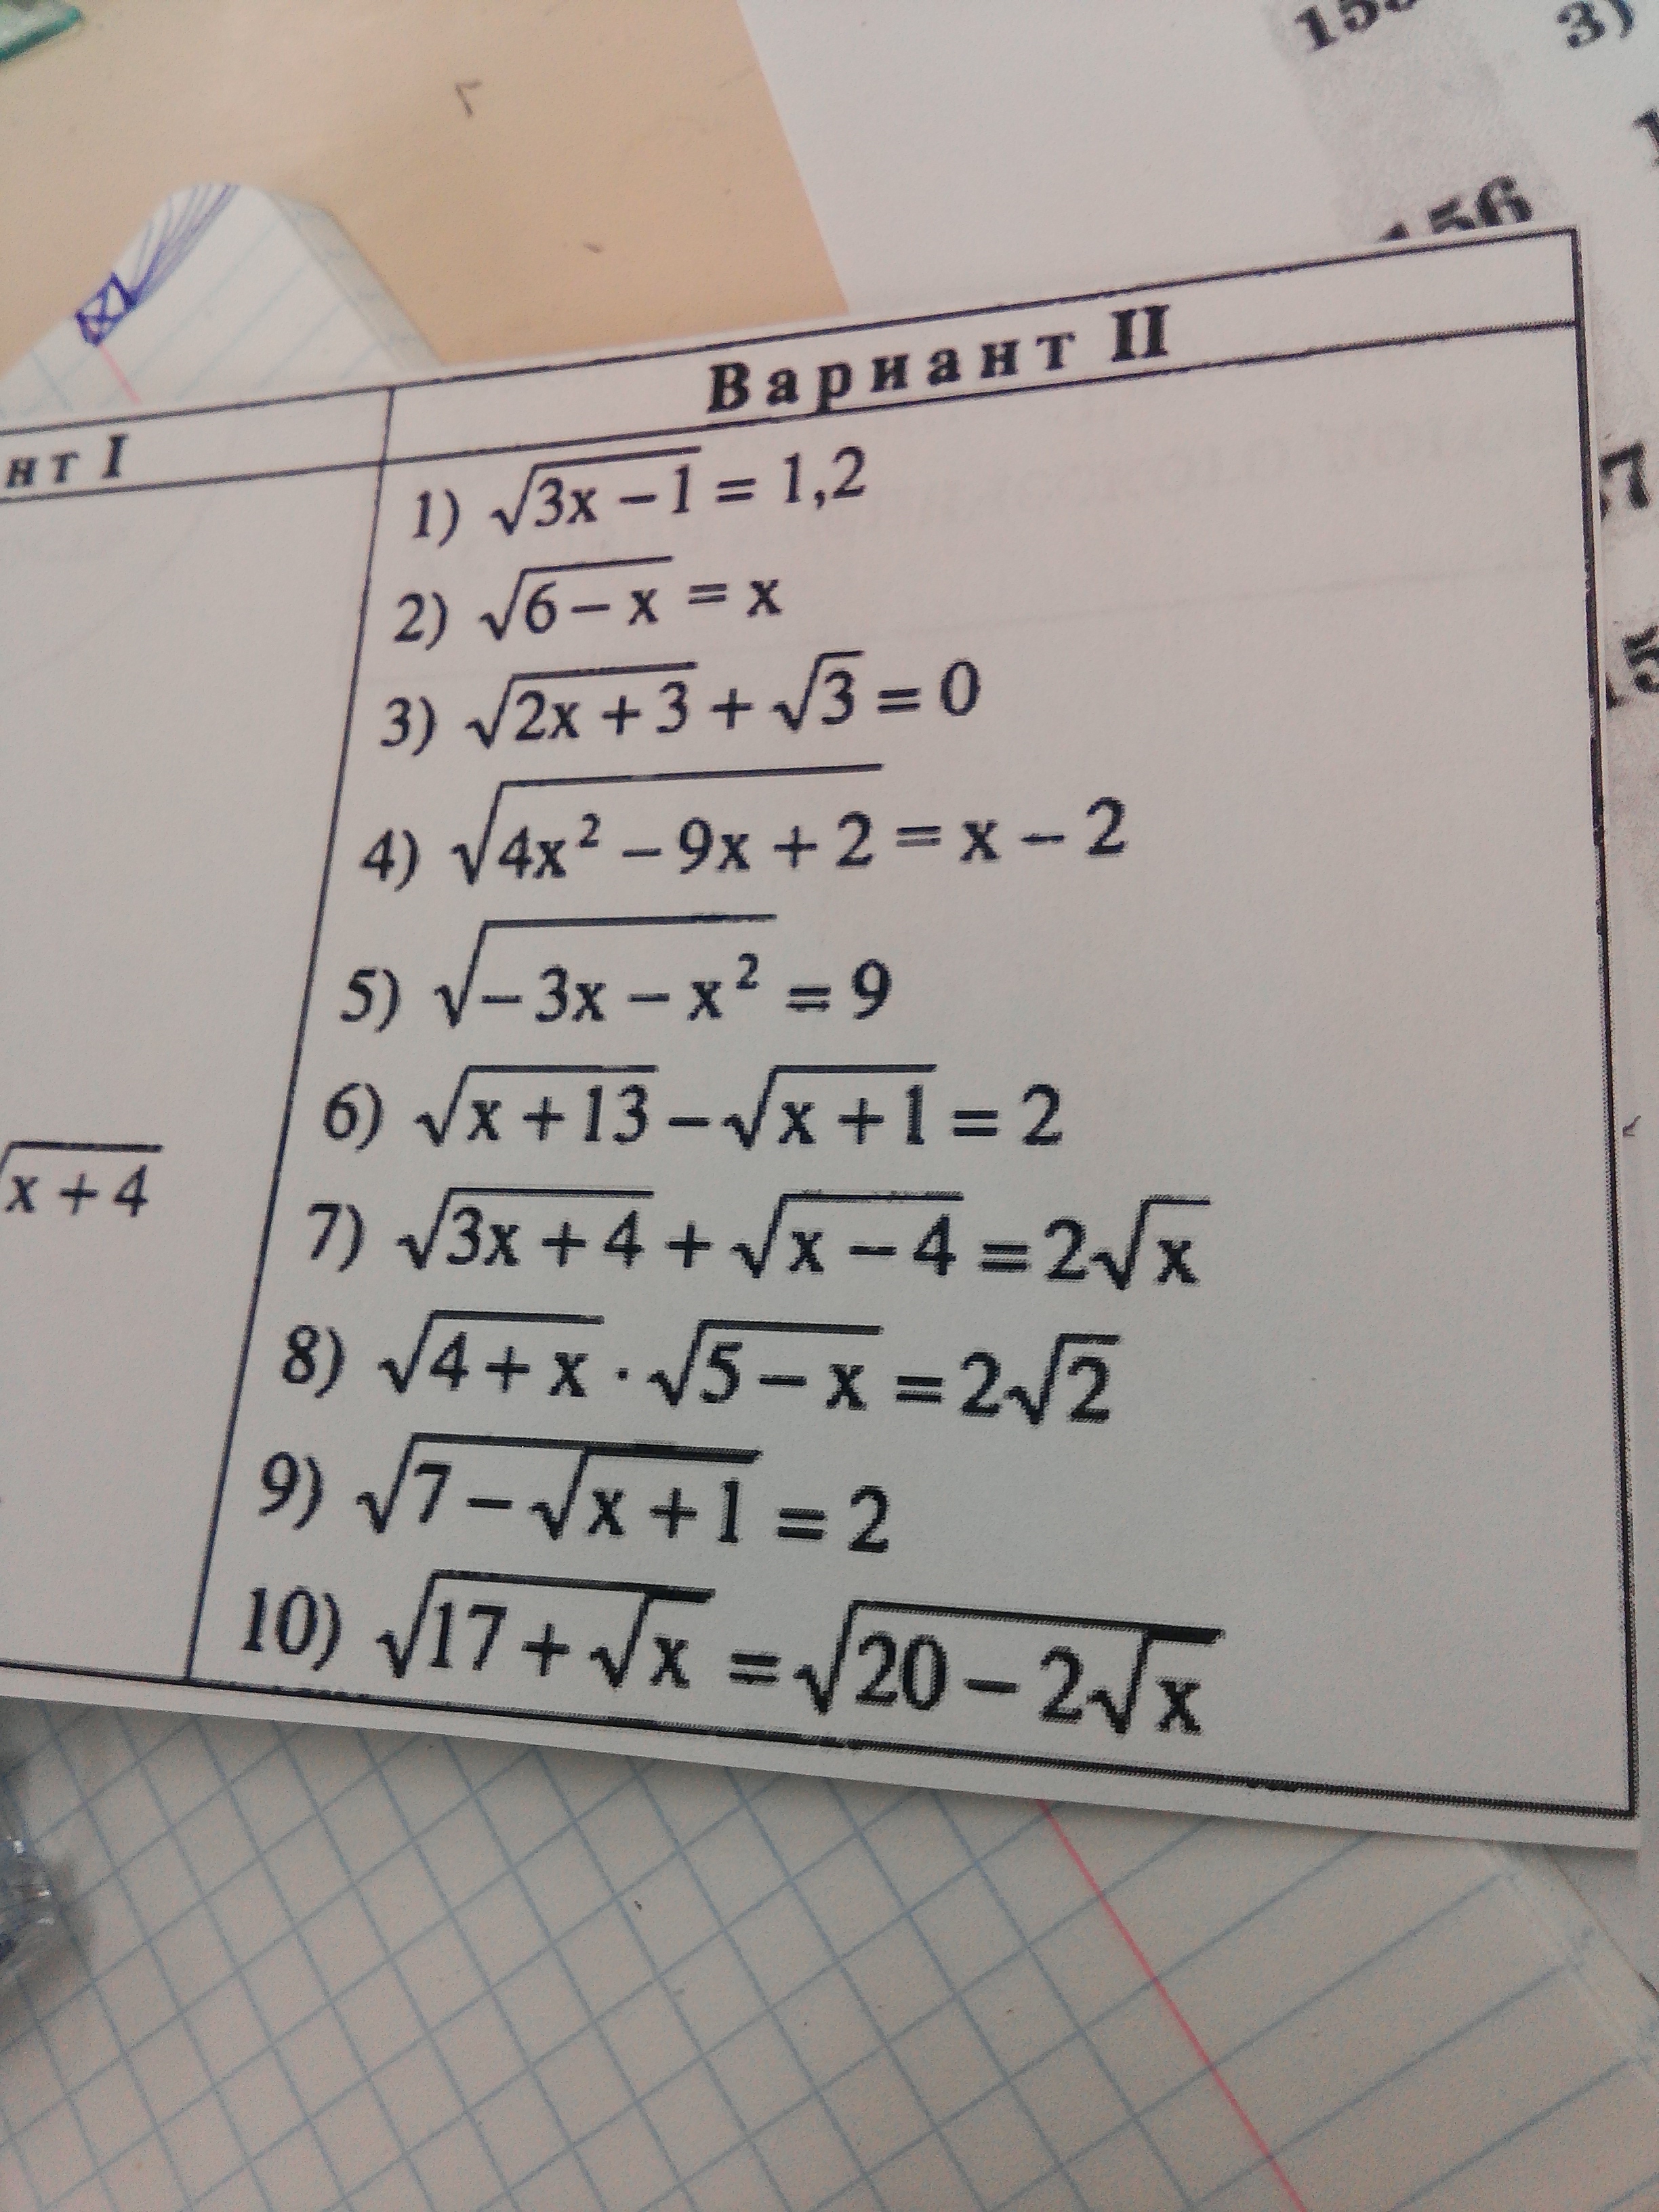 3)
156
нт I
Вариант II
1) √(3x − 1) = 1,2
2) √(6 − x) = x
3) √(2x + 3) + √3 = 0
4) √(4x² − 9x + 2) = x − 2
5) √(−3x − x²) = 9
6) √(x + 13) − √(x + 1) = 2
√(x + 4)
7) √(3x + 4) + √(x − 4) = 2√x
8) √(4 + x) · √(5 − x) = 2√2
9) √(7 − √(x + 1)) = 2
10) √(17 + √x) = √(20 − 2√x)